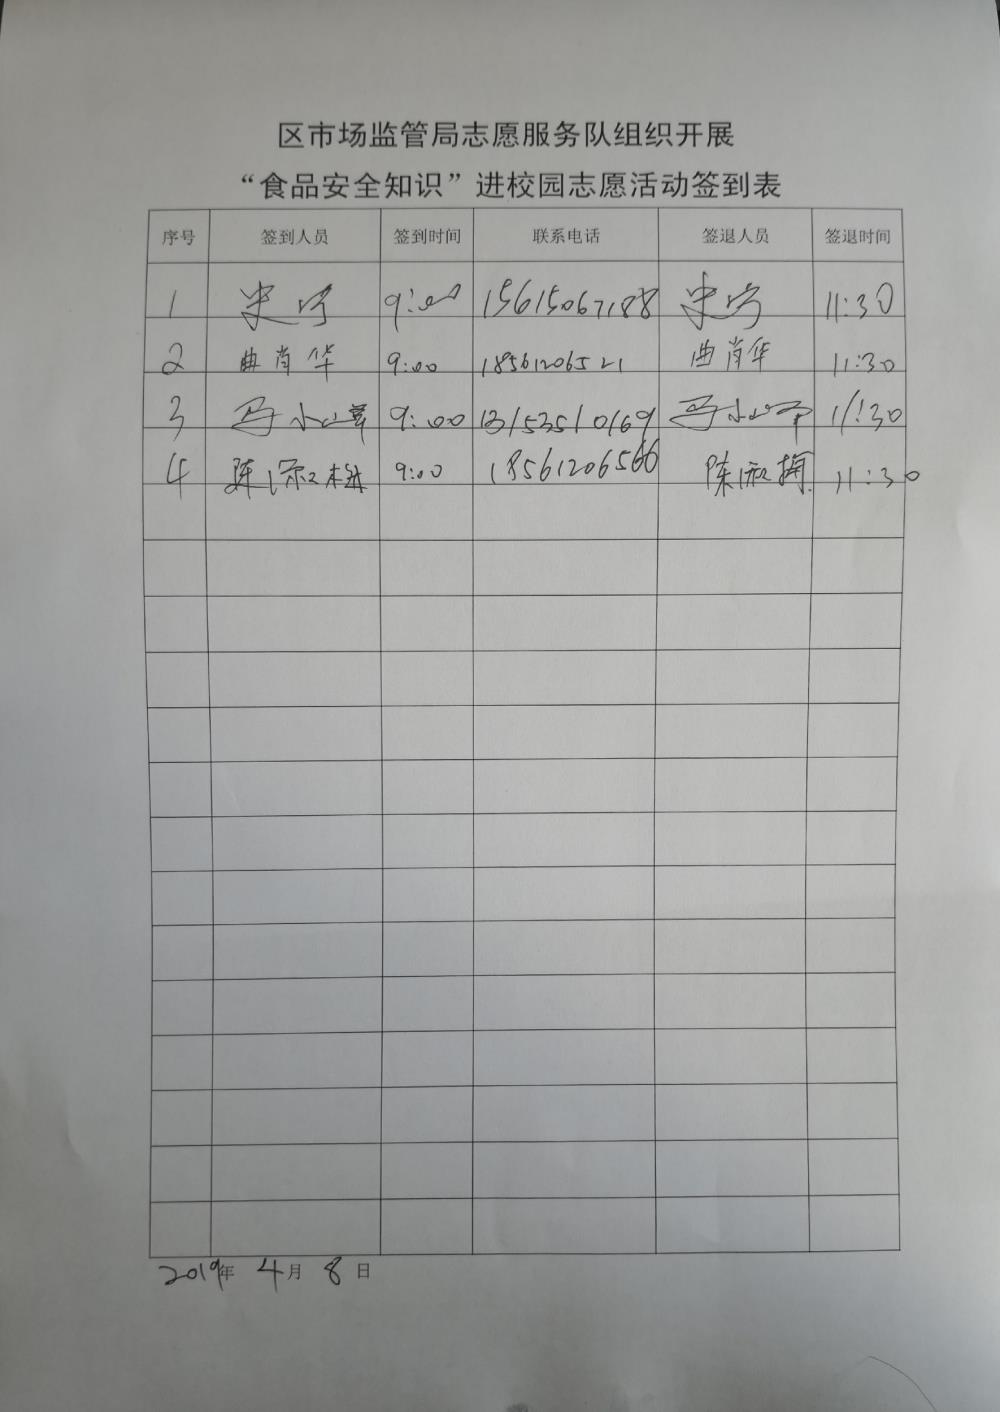 区市场监管局志愿服务队组织开展
“食品安全知识”进校园志愿活动签到表
序号 签到人员 签到时间 联系电话 签退人员 签退时间
1 史宁 9:00 15615067188 史宁 11:30
2 曲肖华 9:00 18561206521 曲肖华 11:30
3 冯小 9:00 13153510169 冯小 11:30
4 陈淑梅 9:00 18561206566 陈淑梅 11:30
2019年 4月 8日